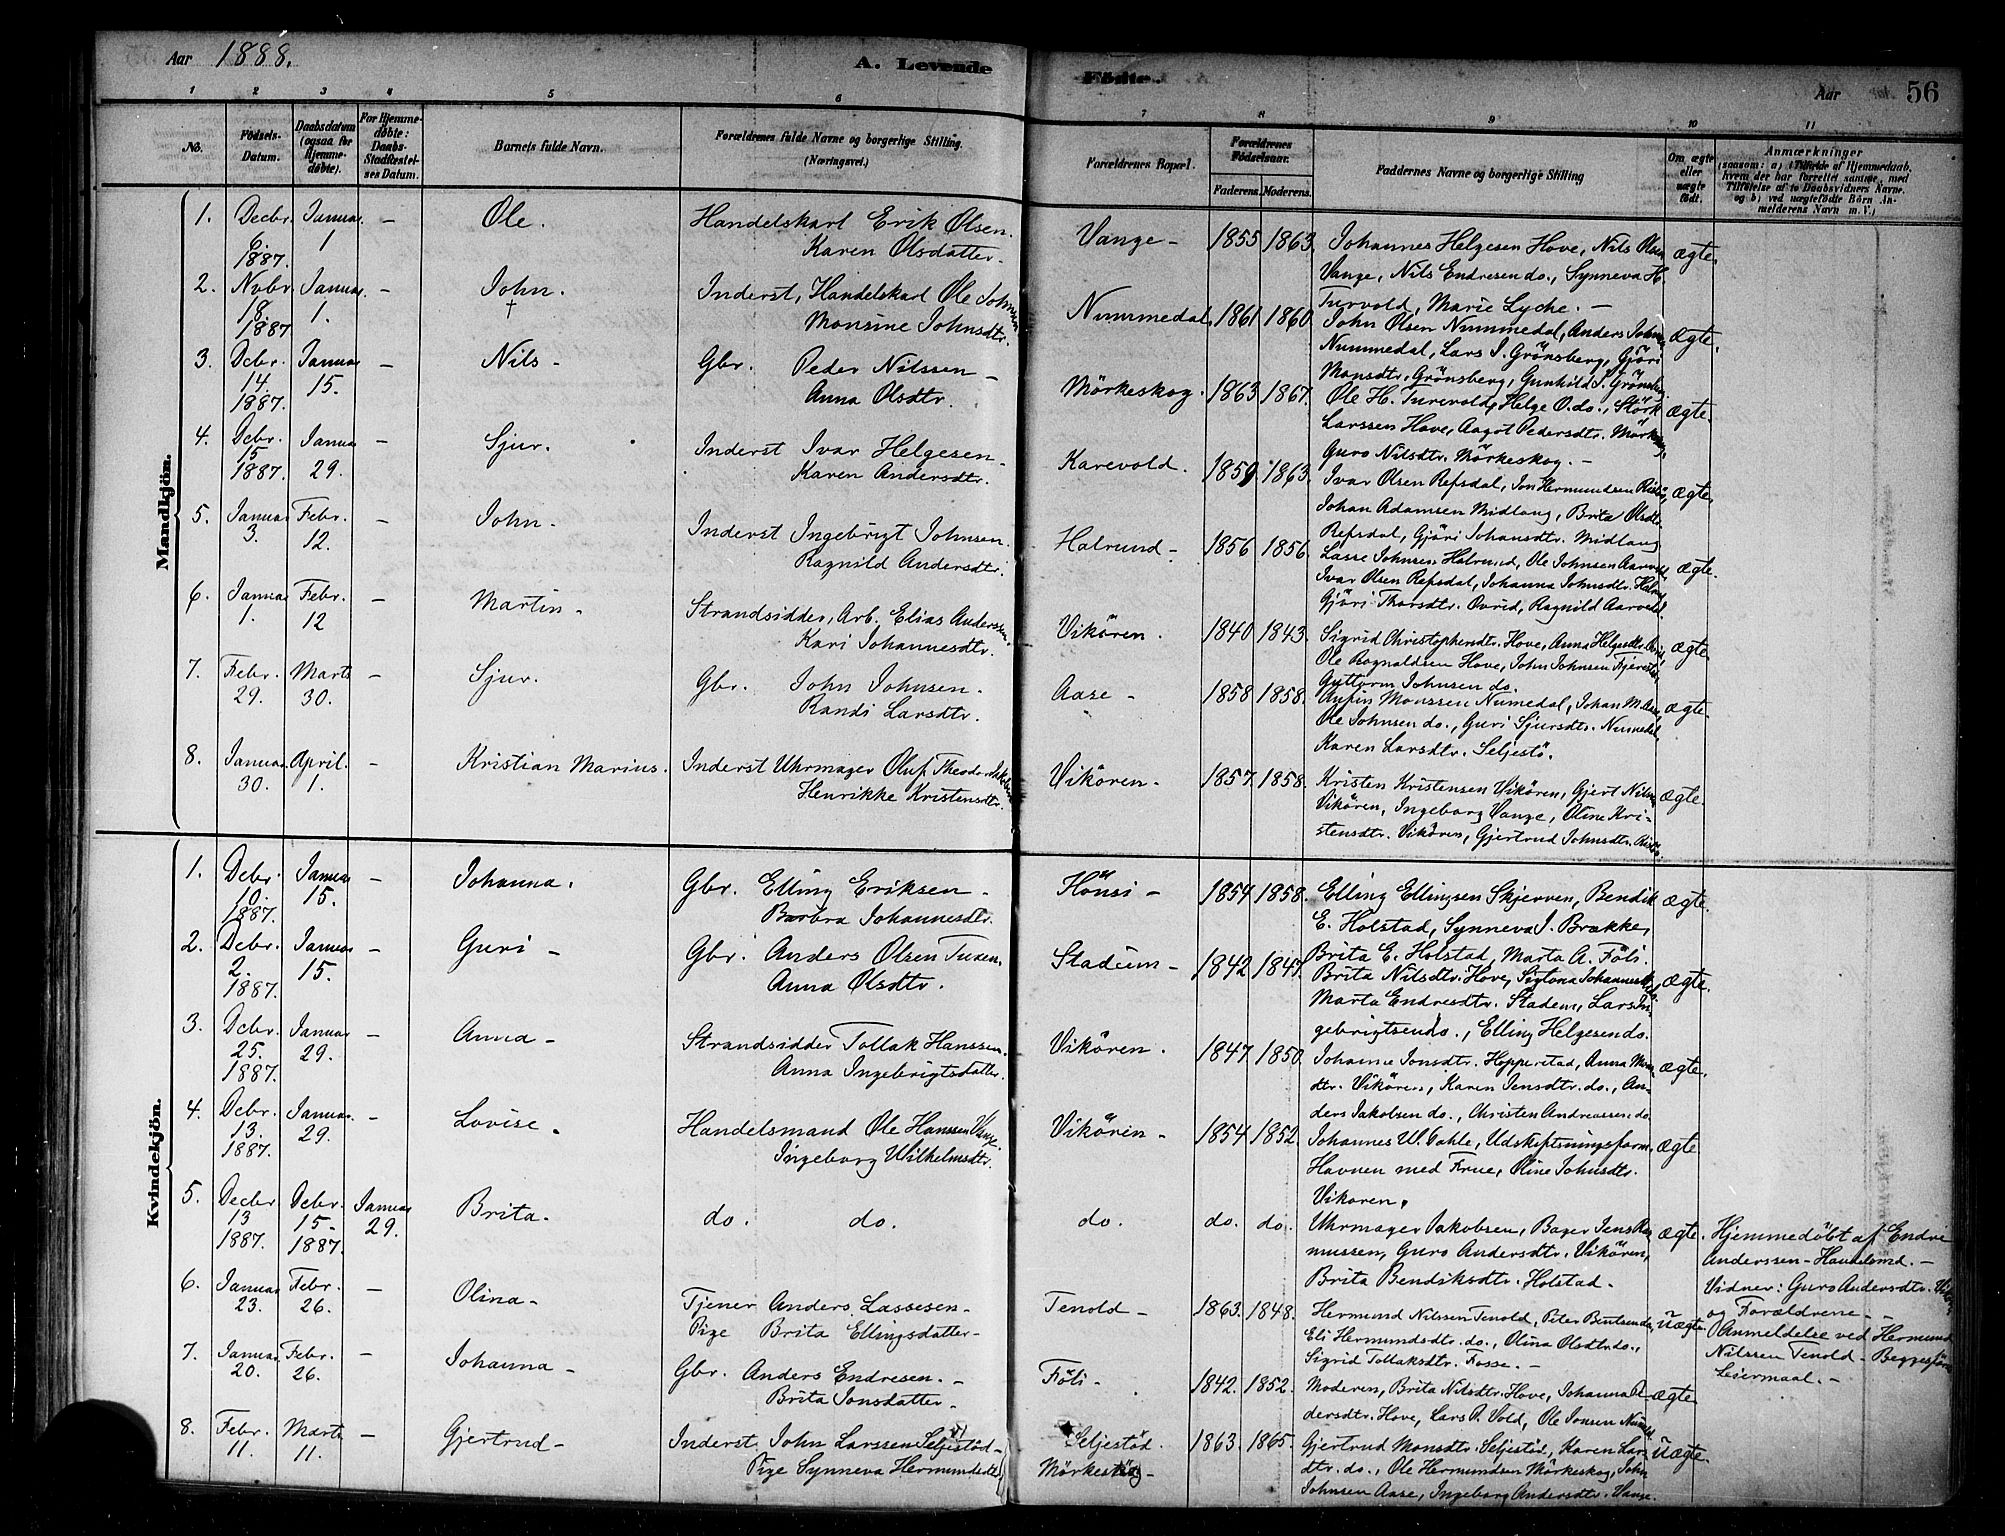 Aar 1888.
A. Levende
Fødte.
Aar
56
1 2 3 4 5 6 7 8 9 10 11
No.
Fødsels-Datum.
Daabsdatum (ogsaa for Hjemmedøbte).
For Hjemmedøbte: Daabs-Stadfæstelses Datum.
Barnets fulde Navn.
Forældrenes fulde Navne og borgerlige Stilling.
(Næringsvei.)
Forældrenes Bopæl.
Forældrenes Fødselsaar.
Faderens. Moderens.
Faddernes Navne og borgerlige Stilling
Om ægte eller uægte født.
Anmærkninger
(saasom: a) Tilfælde af Hjemmedaab,
hvem der har forrettet samme, med
Tilføielse af to Daabsvidners Navne,
og b) ved uægtefødte Børn Anmelderens Navn m. V.)
Mandkjön.
1. Decbr. 6. 1887. Januar 1 – Ole. Handelskarl Erik Olsen. Vange – 1855 1863. Johannes Helgesen Hove, Nils Olsen ægte.
Karen Olsdatter. Vange, Nils Endresen do., Synneva H.
Turvold, Marie Lyche. –
2. Novbr. 18. 1887 Januar. 1. – John. † Inderst, Handelskarl Ole Johnsen Nummedal, 1861 1860 John Olsen Nummedal, Anders ægte.
Monsine Johnsdtr. Nummedal, Lars J. Grönsberg, Gjöri
Monsdtr. Grönsberg, Gunhild J. Grönsberg.
3. Dcbr. 14. 1887. Januar 15. – Nils – Gbr. Peder Nilssen – Mörkeskog. 1863 1867. Ole H. Turevold, Helge O. do., Störk ægte.
Anna Olsdtr. Larssen Hove, Aagot Pedersdtr. Mörkeskog,
Guro Nilsdtr. Mörkeskog. –
4. Dcbr. 15 1887. Januar 29. – Sjur. Inderst Ivar Helgesen – Karevold. 1859 1863. Ivar Olsen Refsdal, Jon Hermundsen ægte.
Karen Andersdtr. Johan Adamsen Midlang, Brita Olsdtr.
Refsdal, Gjöri Johansdtr. Midlang
5. Januar 3. Febr. 12. – John. Inderst Ingebrigt Johnsen. Halrund – 1856 1856. Lasse Johnsen Halrund, Ole Johnsen ægte.
Ragnild Andersdtr. Ivar Olsen Refsdal, Johanna Johnsdtr.
Gjöri Thorsdtr. Ovrid, Ragnild
6. Januar 1. Febr. 12 – Martin – Strandsidder, Arb. Elias Anderssen Vikören. 1840 1843. Sigrid Christophersdtr. Hove, Anna Helgesdtr. ægte.
Kari Johannesdtr. Ole Rognaldsen Hove, John Johnsen
Guttorm Johnsen do.
7. Febr. 29. Marts 30. – Sjur. Gbr. John Johnsen. Aase – 1858 1858. Monssen Numedal, Johan M. Aase, ægte.
Randi Larsdtr. Ole Johnsen do., Guri Sjursdtr. Numedal
Karen Larsdtr. Seljestö.
8. Januar 30. April. 1. – Kristian Marius. Inderst Uhrmager Oluf Theodor Jakobsen Vikören – 1857 1858. Kristen Kristensen Vikören, Gjert ægte.
Henrikke Kristensdtr. Vikören, Ingeborg Vange, Oline Kri-
stensdtr. Vikören, Gjertrud Johnsdtr.
Kvindekjön.
1. Dcbr. 10. 1887. Januar 15. – Johanna. Gbr. Elling Eriksen – Hönsi – 1854 1858. Elling Ellingsen Skjerven, Bendik ægte.
Barbra Johannesdtr. E. Holstad, Synneva J. Brække,
Brita E. Holstad, Marta A. Föli.
2. Dcbr. 2. 1887. Januar 15. – Guri – Gbr. Anders Olsen Tuxen. Stadeim – 1842 1847. Brita Nilsdtr. Hove, Johannesdtr. ægte.
Anna Olsdtr. Marta Endresdtr. Stadem, Lars In-
gebrigtsen do., Elling Helgesen do.
3. Dcbr. 25. 1887. Januar 29. – Anna – Strandsidder Tollak Hanssen. Vikören. 1847. 1850. Johanne Jonsdtr. Hopperstad, Anna ægte.
Anna Ingebrigtsdatter. dtr. Vikören, Karen Jensdtr. do., An-
ders Jakobsen do., Christen Andreassen do.
4. Dcbr. 13. 1887. Januar 29. – Lovise. Handelsmand Ole Hanssen Vange. Vikören – 1854 1852. Johannes W. Udskiftningsform. ægte
Ingeborg Wilhelmsdtr. Havnen med Frue, Oline Johnsdtr.
Vikoren.
5. Decbr 13 1887. Dcbr. 15 – 1887. Januar 29. Brita. do. do. do. do. do. Uhrmager Jakobsen, Bager Jens Ras- ægte. Hjemmedöbt af Endre
mussen, Guro Andersdtr. Vikören, Anderssen – Handelsmd. –
Brita Bendiksdtr. Holstad. Vidner: Guro Andersdtr.
og Forældrene –
6. Januar 23. Febr. 26. – Olina – Tjener Anders Lassesen – Tenold – 1863. 1848. Hermund Nilssen Tenold, Peter Bentsen do, uægte. Anmeldelse ved Hermund
Pige Brita Ellingsdatter – Eli Hermundsdtr. do., Olina Olsdtr. do., Nilssen Tenold –
Sigrid Tollaksdtr. Fosse. – Leiermaal. –
7. Januar 20. Febr. 26. – Johanna – Gbr. Anders Endresen. – Föli – 1842. 1852. Moderen, Brita Nilsdtr. Hove, Johanna ægte
Brita Jonsdatter. dersdtr. Hove, Lars P. Vold, Ole Jonsen
8. Febr. 11. Marts 11. Gjertrud – Inderst John Larssen Seljestöd – Seljestöd. 1863. 1865. Gjertrud Monsdtr. Seljestöd, Karen Lars uægte.
Pige Synneva Hermundsdtr. Mörkeskog – dtr. do., Ole Hermundsen Mörkeskog, John
Johnsen Aase, Ingeborg Andersdtr. Vange.